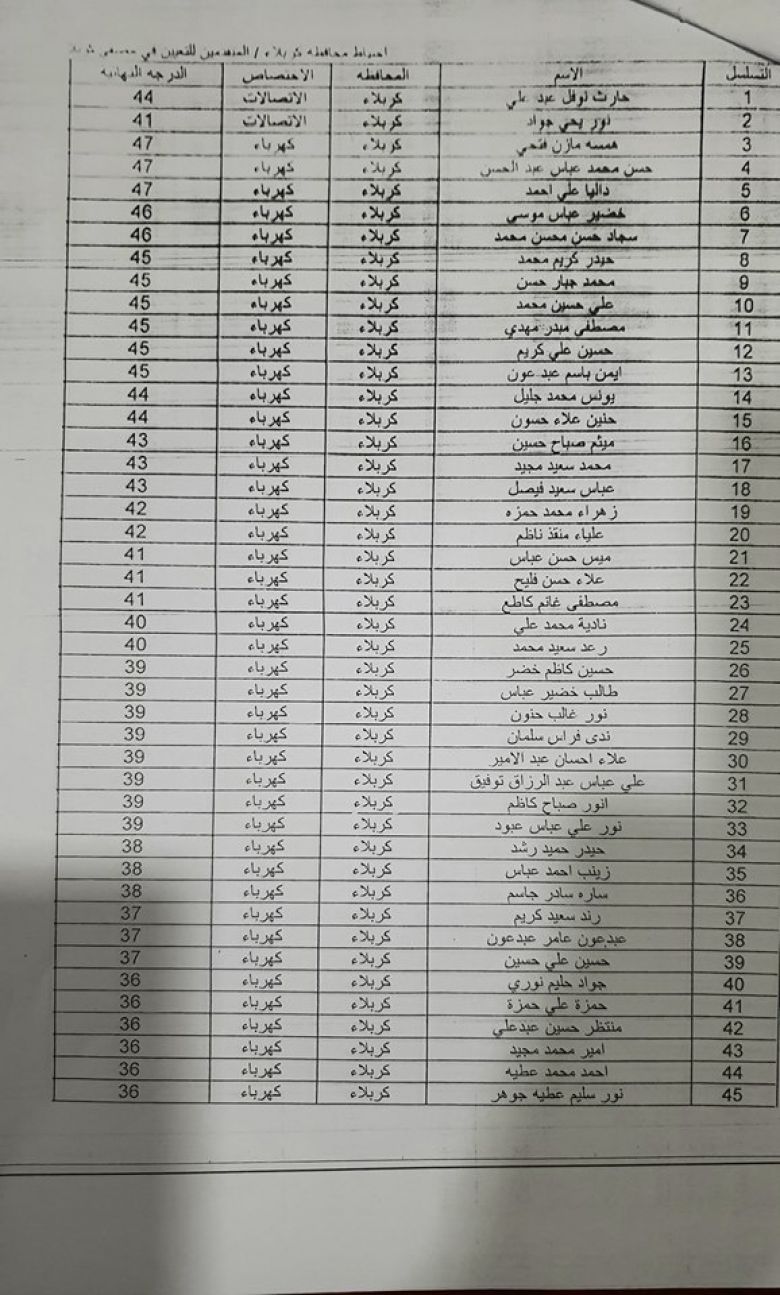 احتياط محافظه كربلاء / المتقدمين للتعيين في مصفى كربلاء
التسلسل الاسم المحافظه الاختصاص الدرجه النهائيه
1 حارث نوفل عبد علي كربلاء الاتصالات 44
2 نور يحي جواد كربلاء الاتصالات 41
3 همسه مازن فتحي كربلاء كهرباء 47
4 حسن محمد عباس عبد الحسن كربلاء كهرباء 47
5 داليا علي احمد كربلاء كهرباء 47
6 خضير عباس موسى كربلاء كهرباء 46
7 سجاد حسن محسن محمد كربلاء كهرباء 46
8 حيدر كريم محمد كربلاء كهرباء 45
9 محمد جبار حسن كربلاء كهرباء 45
10 علي حسين محمد كربلاء كهرباء 45
11 مصطفى مبدر مهدي كربلاء كهرباء 45
12 حسين علي كريم كربلاء كهرباء 45
13 ايمن باسم عبد عون كربلاء كهرباء 45
14 يونس محمد جليل كربلاء كهرباء 44
15 حنين علاء حسون كربلاء كهرباء 44
16 ميثم صباح حسين كربلاء كهرباء 43
17 محمد سعيد مجيد كربلاء كهرباء 43
18 عباس سعيد فيصل كربلاء كهرباء 43
19 زهراء محمد حمزه كربلاء كهرباء 42
20 علياء منقذ ناظم كربلاء كهرباء 42
21 ميس حسن عباس كربلاء كهرباء 41
22 علاء حسن فليح كربلاء كهرباء 41
23 مصطفى غانم كاطع كربلاء كهرباء 41
24 نادية محمد علي كربلاء كهرباء 40
25 رعد سعيد محمد كربلاء كهرباء 40
26 حسين كاظم خضر كربلاء كهرباء 39
27 طالب خضير عباس كربلاء كهرباء 39
28 نور غالب حنون كربلاء كهرباء 39
29 ندى فراس سلمان كربلاء كهرباء 39
30 علاء احسان عبد الامير كربلاء كهرباء 39
31 علي عباس عبد الرزاق توفيق كربلاء كهرباء 39
32 انور صباح كاظم كربلاء كهرباء 39
33 نور علي عباس عبود كربلاء كهرباء 39
34 حيدر حميد رشد كربلاء كهرباء 38
35 زينب احمد عباس كربلاء كهرباء 38
36 ساره سادر جاسم كربلاء كهرباء 38
37 رند سعيد كريم كربلاء كهرباء 37
38 عبدعون عامر عبدعون كربلاء كهرباء 37
39 حسين علي حسين كربلاء كهرباء 37
40 جواد حليم نوري كربلاء كهرباء 36
41 حمزة علي حمزة كربلاء كهرباء 36
42 منتظر حسين عبدعلي كربلاء كهرباء 36
43 امير محمد مجيد كربلاء كهرباء 36
44 احمد محمد عطيه كربلاء كهرباء 36
45 نور سليم عطيه جوهر كربلاء كهرباء 36